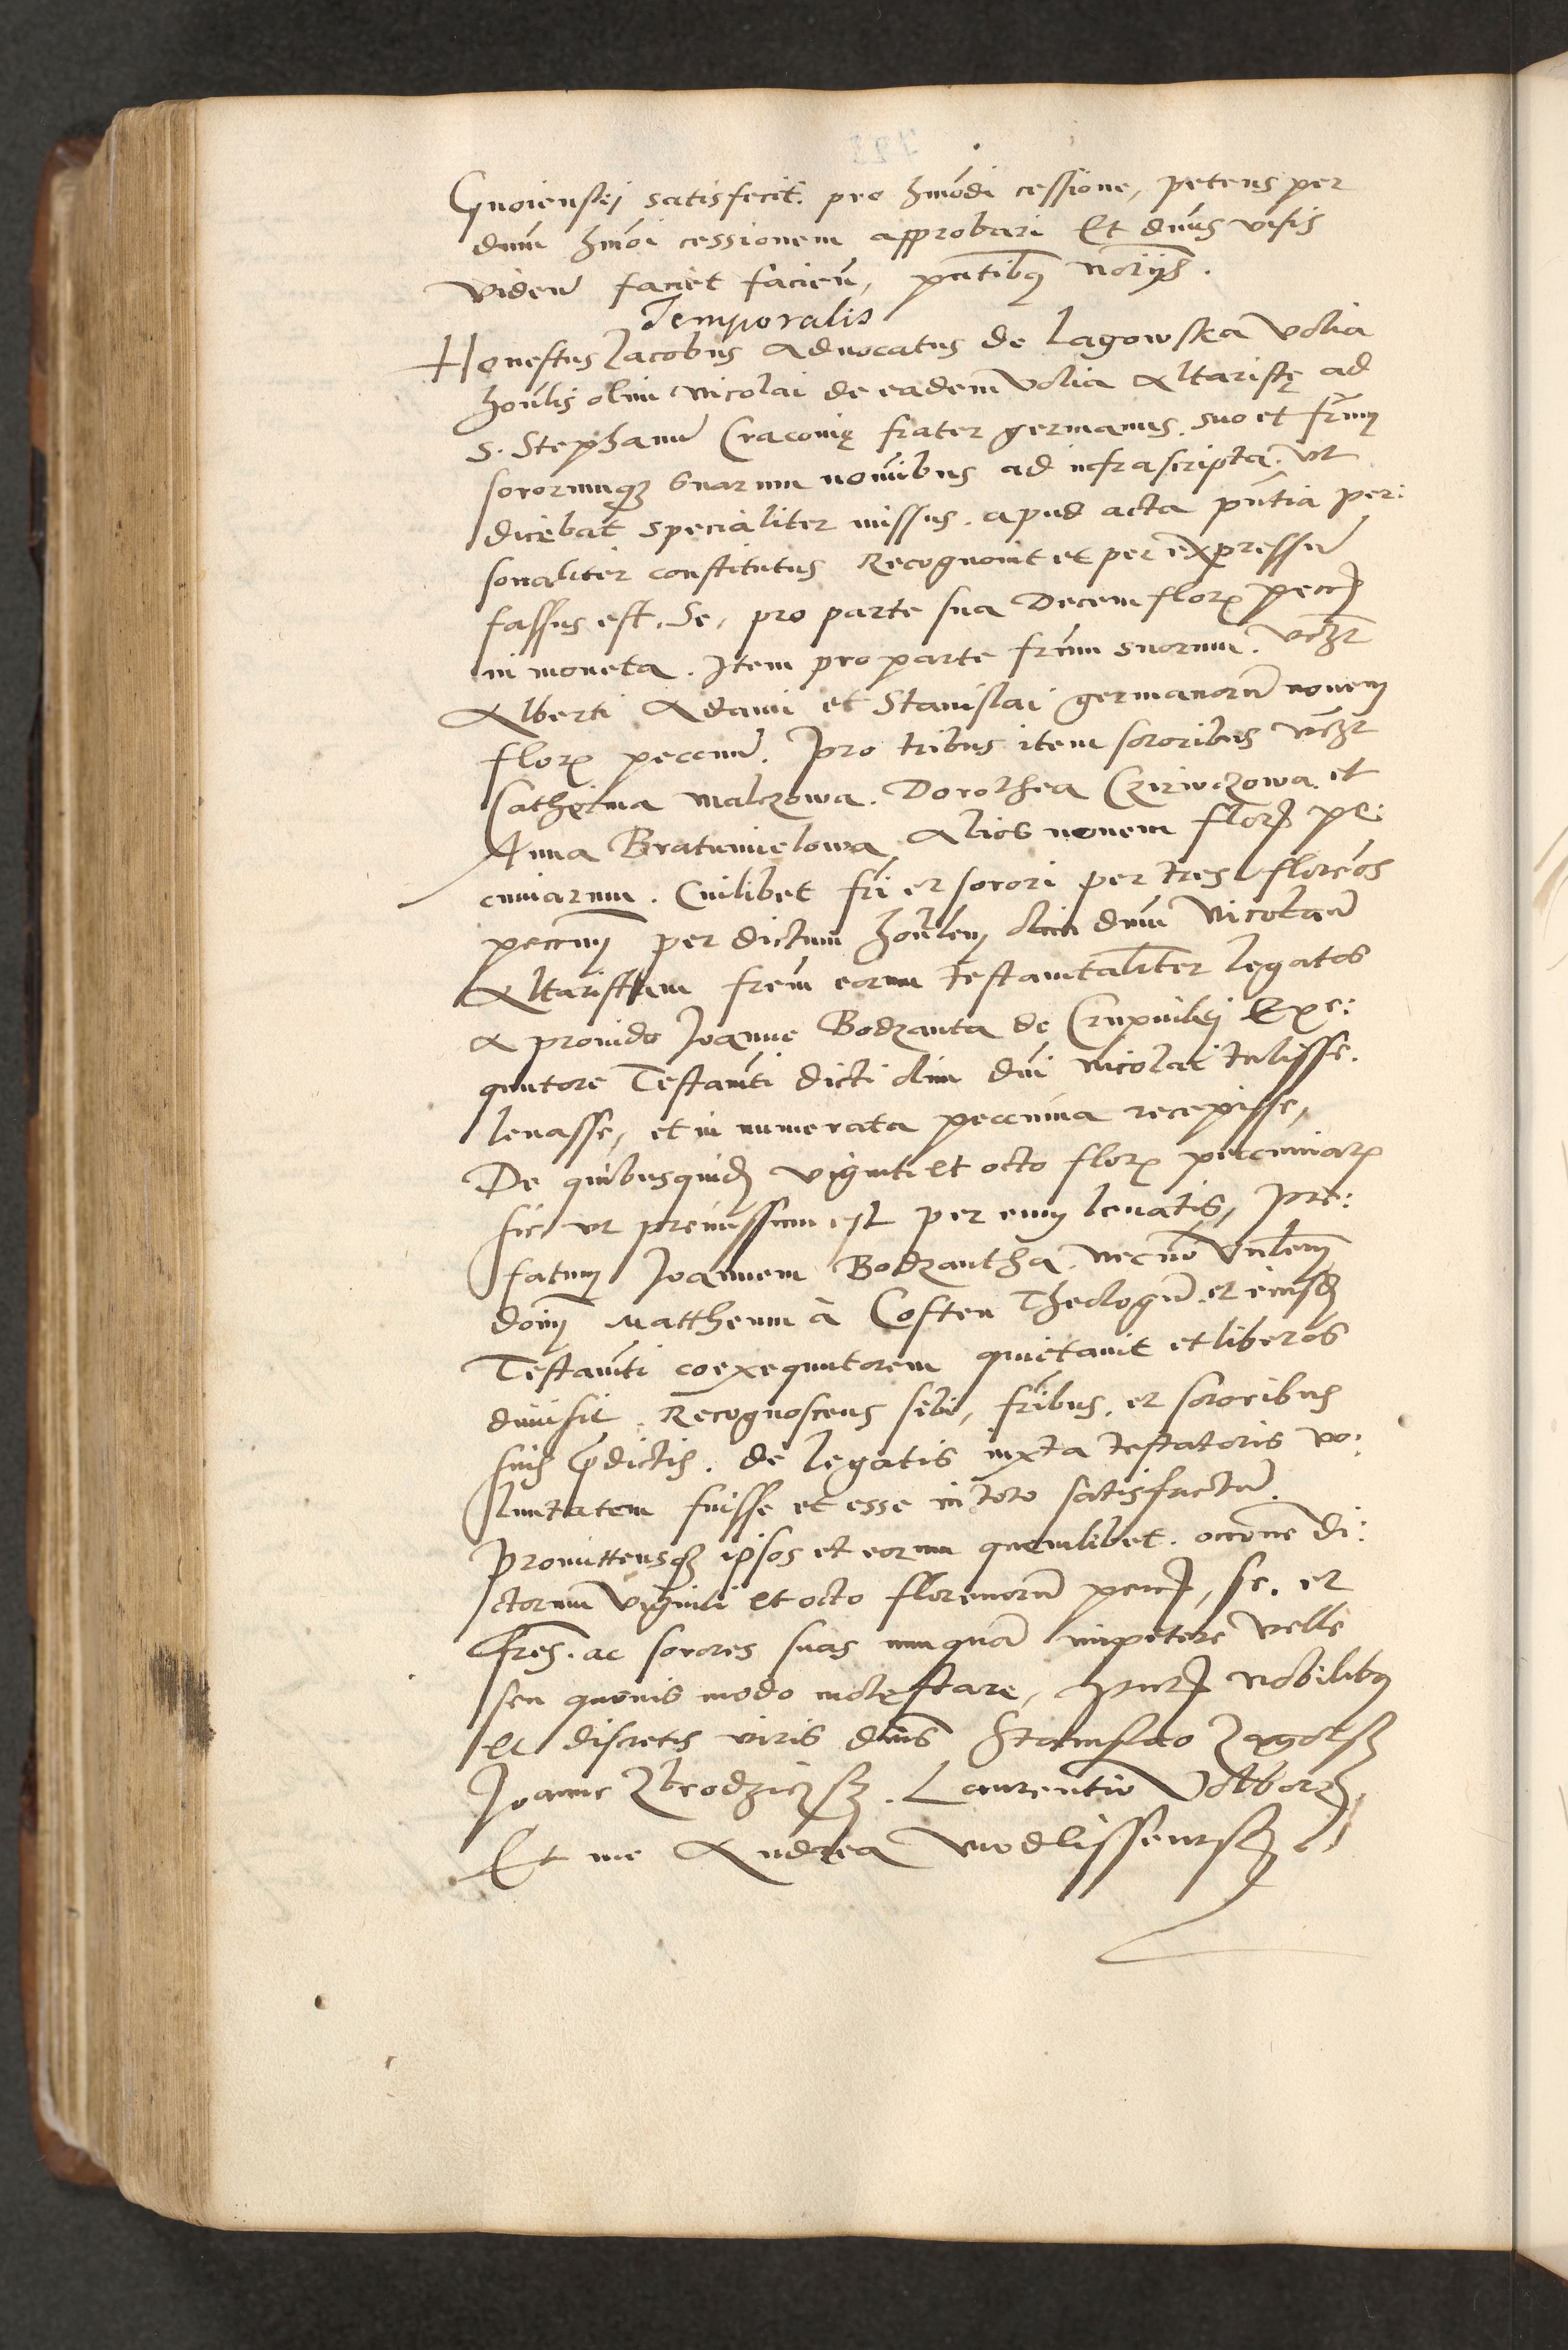 Gnoiensij satisfecit. pro hmodi cessione, petens per
dnum hmoi cessionem approbari Et dnus visis
viden faciet facien, pntibus notrijs.
Temporalis
Honestus Jacobus Advocatus de Lagowska volia
honlis olim Nicolai de eadem volia Altaristę ad
S. Stephanum Cracovię frater germanus. suo et frum
sororumque suarum nominibus ad infrascripta. ut
dicebat specialiter missus. apud acta pntia per:
sonaliter constitutus Recognovit et per expressum
fassus est. Se, pro parte sua Decem flor pecc
in moneta. Item pro parte frum suorum. vczt
Alberti Adami et Stanislai germanorum novem
flor peccnum. Pro tribus item sororibus vczt
Catherina Malczowa. Dorothea Czirwczowa. et
Anna Bratumielowa, Alios novem flor pe:
cuniarum. Cuilibet fri et sorori per tres florenos
peccnum per dictum honlem olim dnum Nicolaum
Altaristam frem eorum testamtaliter legatos
a provido Joanne Bodzanta de Czupnilij Exe:
quutore Testamti dicti olim dni Nicolai tulisse.
levasse, et in numerata peccunia recepisse,
De quibusquid viginti et octo flor peccuniar
sic ut premissum est per eum levatis, pre:
fatum Joannem Bodzantha. necno vnlem
dom Mattheum à Costen Theologum et eiusd
Testamti coexequutorem quietavit et liberos
dimisit. Recognoscens sibi, fribus. et sororibus
suis predictis. de legatis iuxta testatoris vo:
luntatem fuisse et esse in toto satisfactum.
Promittensque ipsos et eorum quemlibet. occone di:
ctorum viginti et octo florenorum pecc, se. et
fres. ac sorores suas nunquam impetere velle
seu quovis modo molestare, pntibus Nobilibus
et discretis viris dnis Stanislao Zagorsky
Joanne Zbrodziczsky. Laurentio Volborz
Et me Andrea Modlissewsky